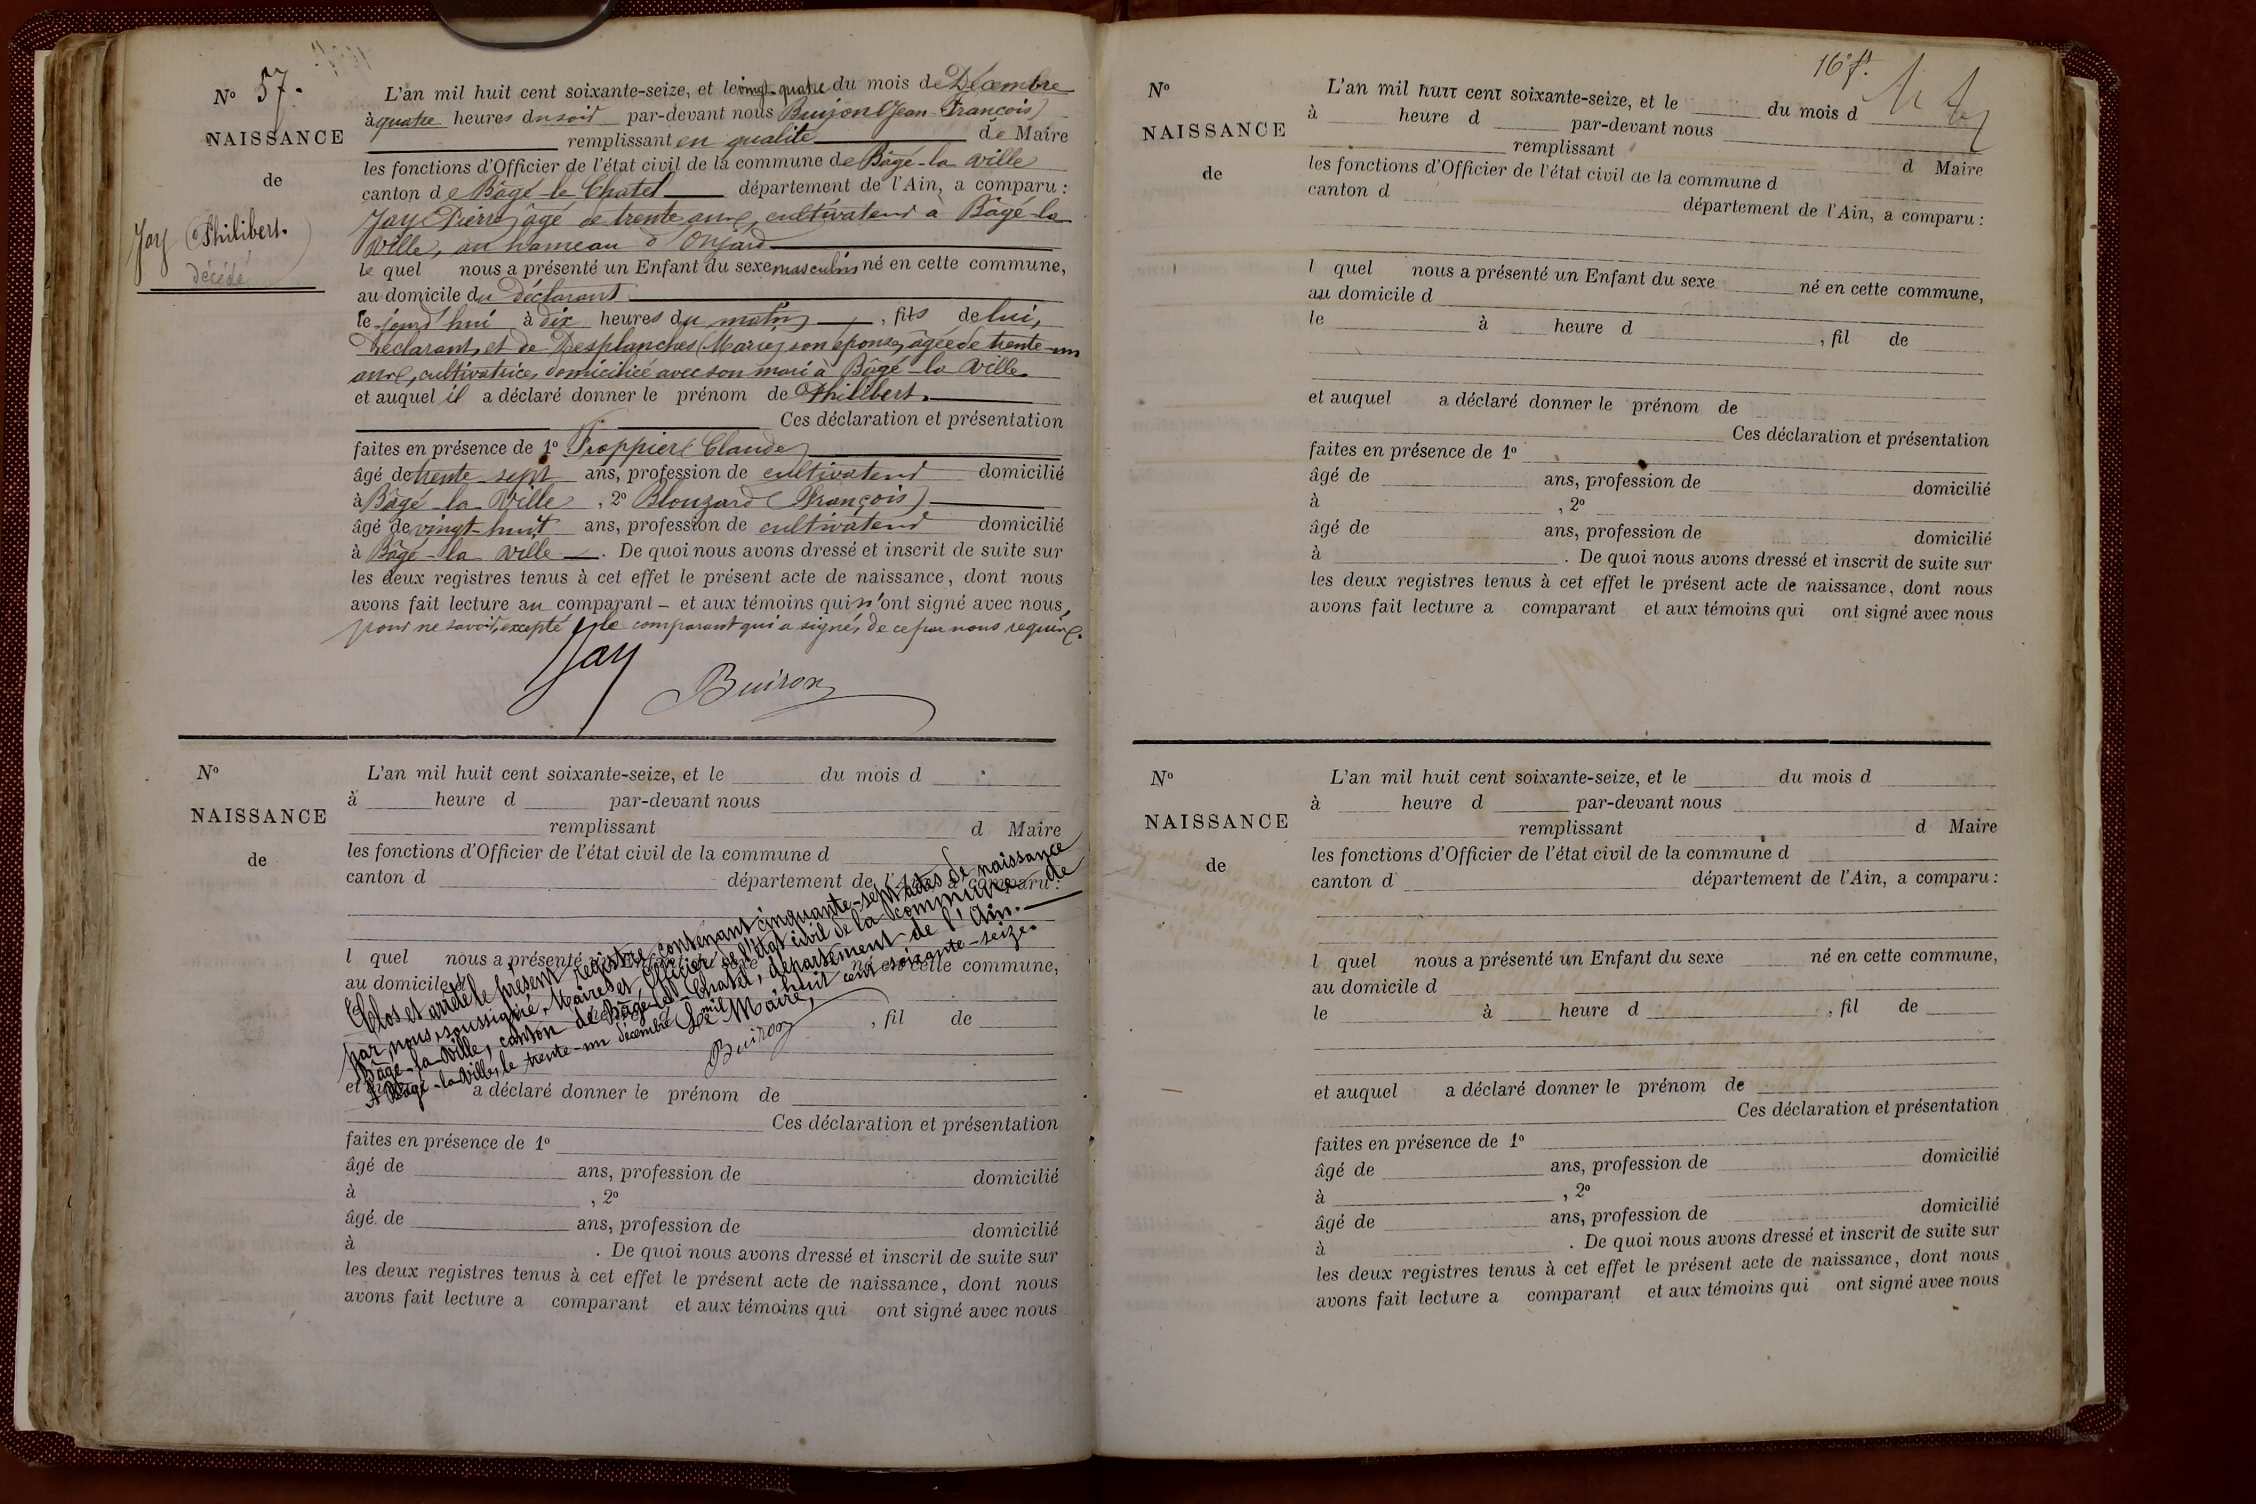 N° 57.
NAISSANCE
de
Jay (Philibert)
décédé
L'an mil huit cent soixante-seize, et le vingt-quatre du mois de Décembre
à quatre heures du soir par-devant nous Buiron (Jean-François)
remplissant en qualité de Maire
les fonctions d'Officier de l'état civil de la commune de Bâgé-la-Ville
canton de Bâgé-le-Châtel département de l'Ain, a comparu :
Jay (Pierre) âgé de trente ans, cultivateur à Bâgé-la
Ville, au hameau d'Onjard
le quel nous a présenté un Enfant du sexe masculin né en cette commune,
au domicile du déclarant
le jourd'hui à dix heures du matin, fils de lui,
déclarant, et de Desplanches (Marie) son épouse, âgée de trente-un
ans, cultivatrice, domiciliée avec son mari à Bâgé-la-Ville
et auquel il a déclaré donner le prénom de Philibert.
Ces déclaration et présentation
faites en présence de 1° Froppier (Claude)
âgé de trente-sept ans, profession de cultivateur domicilié
à Bâgé-la-Ville, 2° Blouzard (François)
âgé de vingt-huit ans, profession de cultivateur domicilié
à Bâgé-la-Ville. De quoi nous avons dressé et inscrit de suite sur
les deux registres tenus à cet effet le présent acte de naissance, dont nous
avons fait lecture au comparant – et aux témoins qui n'ont signé avec nous,
pour ne savoir, excepté le comparant qui a signé, de ce par nous requis.
Jay
Buiron
N°
NAISSANCE
de
L'an mil huit cent soixante-seize, et le du mois d
à heure d par-devant nous
remplissant d Maire
les fonctions d'Officier de l'état civil de la commune d
canton d département de l'Ain, a comparu :
l quel nous a présenté un Enfant du sexe né en cette commune,
au domicile d
Clos et arrêté le présent registre contenant cinquante-sept actes de naissance
par nous soussigné, Maire et Officier de l'état civil de la commune de
Bâgé-la-Ville, canton de Bâgé-le-Châtel, département de l'Ain.
A Bâgé-la-Ville, le trente-un décembre mil huit cent soixante-seize.
Le Maire,
Buiron
, fil de
et auquel a déclaré donner le prénom de
Ces déclaration et présentation
faites en présence de 1°
âgé de ans, profession de domicilié
à , 2°
âgé de ans, profession de domicilié
à . De quoi nous avons dressé et inscrit de suite sur
les deux registres tenus à cet effet le présent acte de naissance, dont nous
avons fait lecture a comparant et aux témoins qui ont signé avec nous
16° f.
N°
NAISSANCE
de
L'an mil huit cent soixante-seize, et le du mois d
à heure d par-devant nous
remplissant d Maire
les fonctions d'Officier de l'état civil de la commune d
canton d département de l'Ain, a comparu :
l quel nous a présenté un Enfant du sexe né en cette commune,
au domicile d
le à heure d , fil de
et auquel a déclaré donner le prénom de
Ces déclaration et présentation
faites en présence de 1°
âgé de ans, profession de domicilié
à , 2°
âgé de ans, profession de domicilié
à . De quoi nous avons dressé et inscrit de suite sur
les deux registres tenus à cet effet le présent acte de naissance, dont nous
avons fait lecture a comparant et aux témoins qui ont signé avec nous
N°
NAISSANCE
de
L'an mil huit cent soixante-seize, et le du mois d
à heure d par-devant nous
remplissant d Maire
les fonctions d'Officier de l'état civil de la commune d
canton d département de l'Ain, a comparu :
l quel nous a présenté un Enfant du sexe né en cette commune,
au domicile d
le à heure d , fil de
et auquel a déclaré donner le prénom de
Ces déclaration et présentation
faites en présence de 1°
âgé de ans, profession de domicilié
à , 2°
âgé de ans, profession de domicilié
à . De quoi nous avons dressé et inscrit de suite sur
les deux registres tenus à cet effet le présent acte de naissance, dont nous
avons fait lecture a comparant et aux témoins qui ont signé avec nous